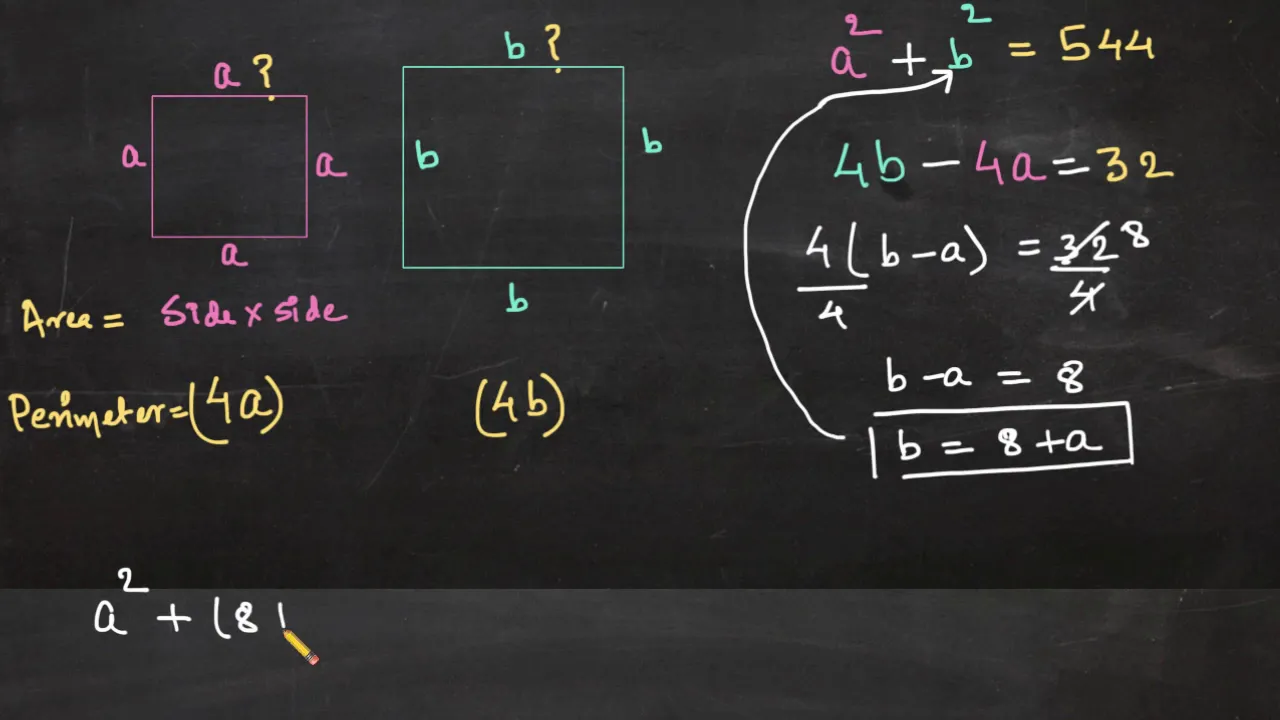 a ?
a
a
a
b ?
b
b
b
Area = Side × side
Perimeter = (4a)
(4b)
a² + b² = 544
4b − 4a = 32
4(b − a) / 4 = 32 / 4 8
b − a = 8
b = 8 + a
a² + (8